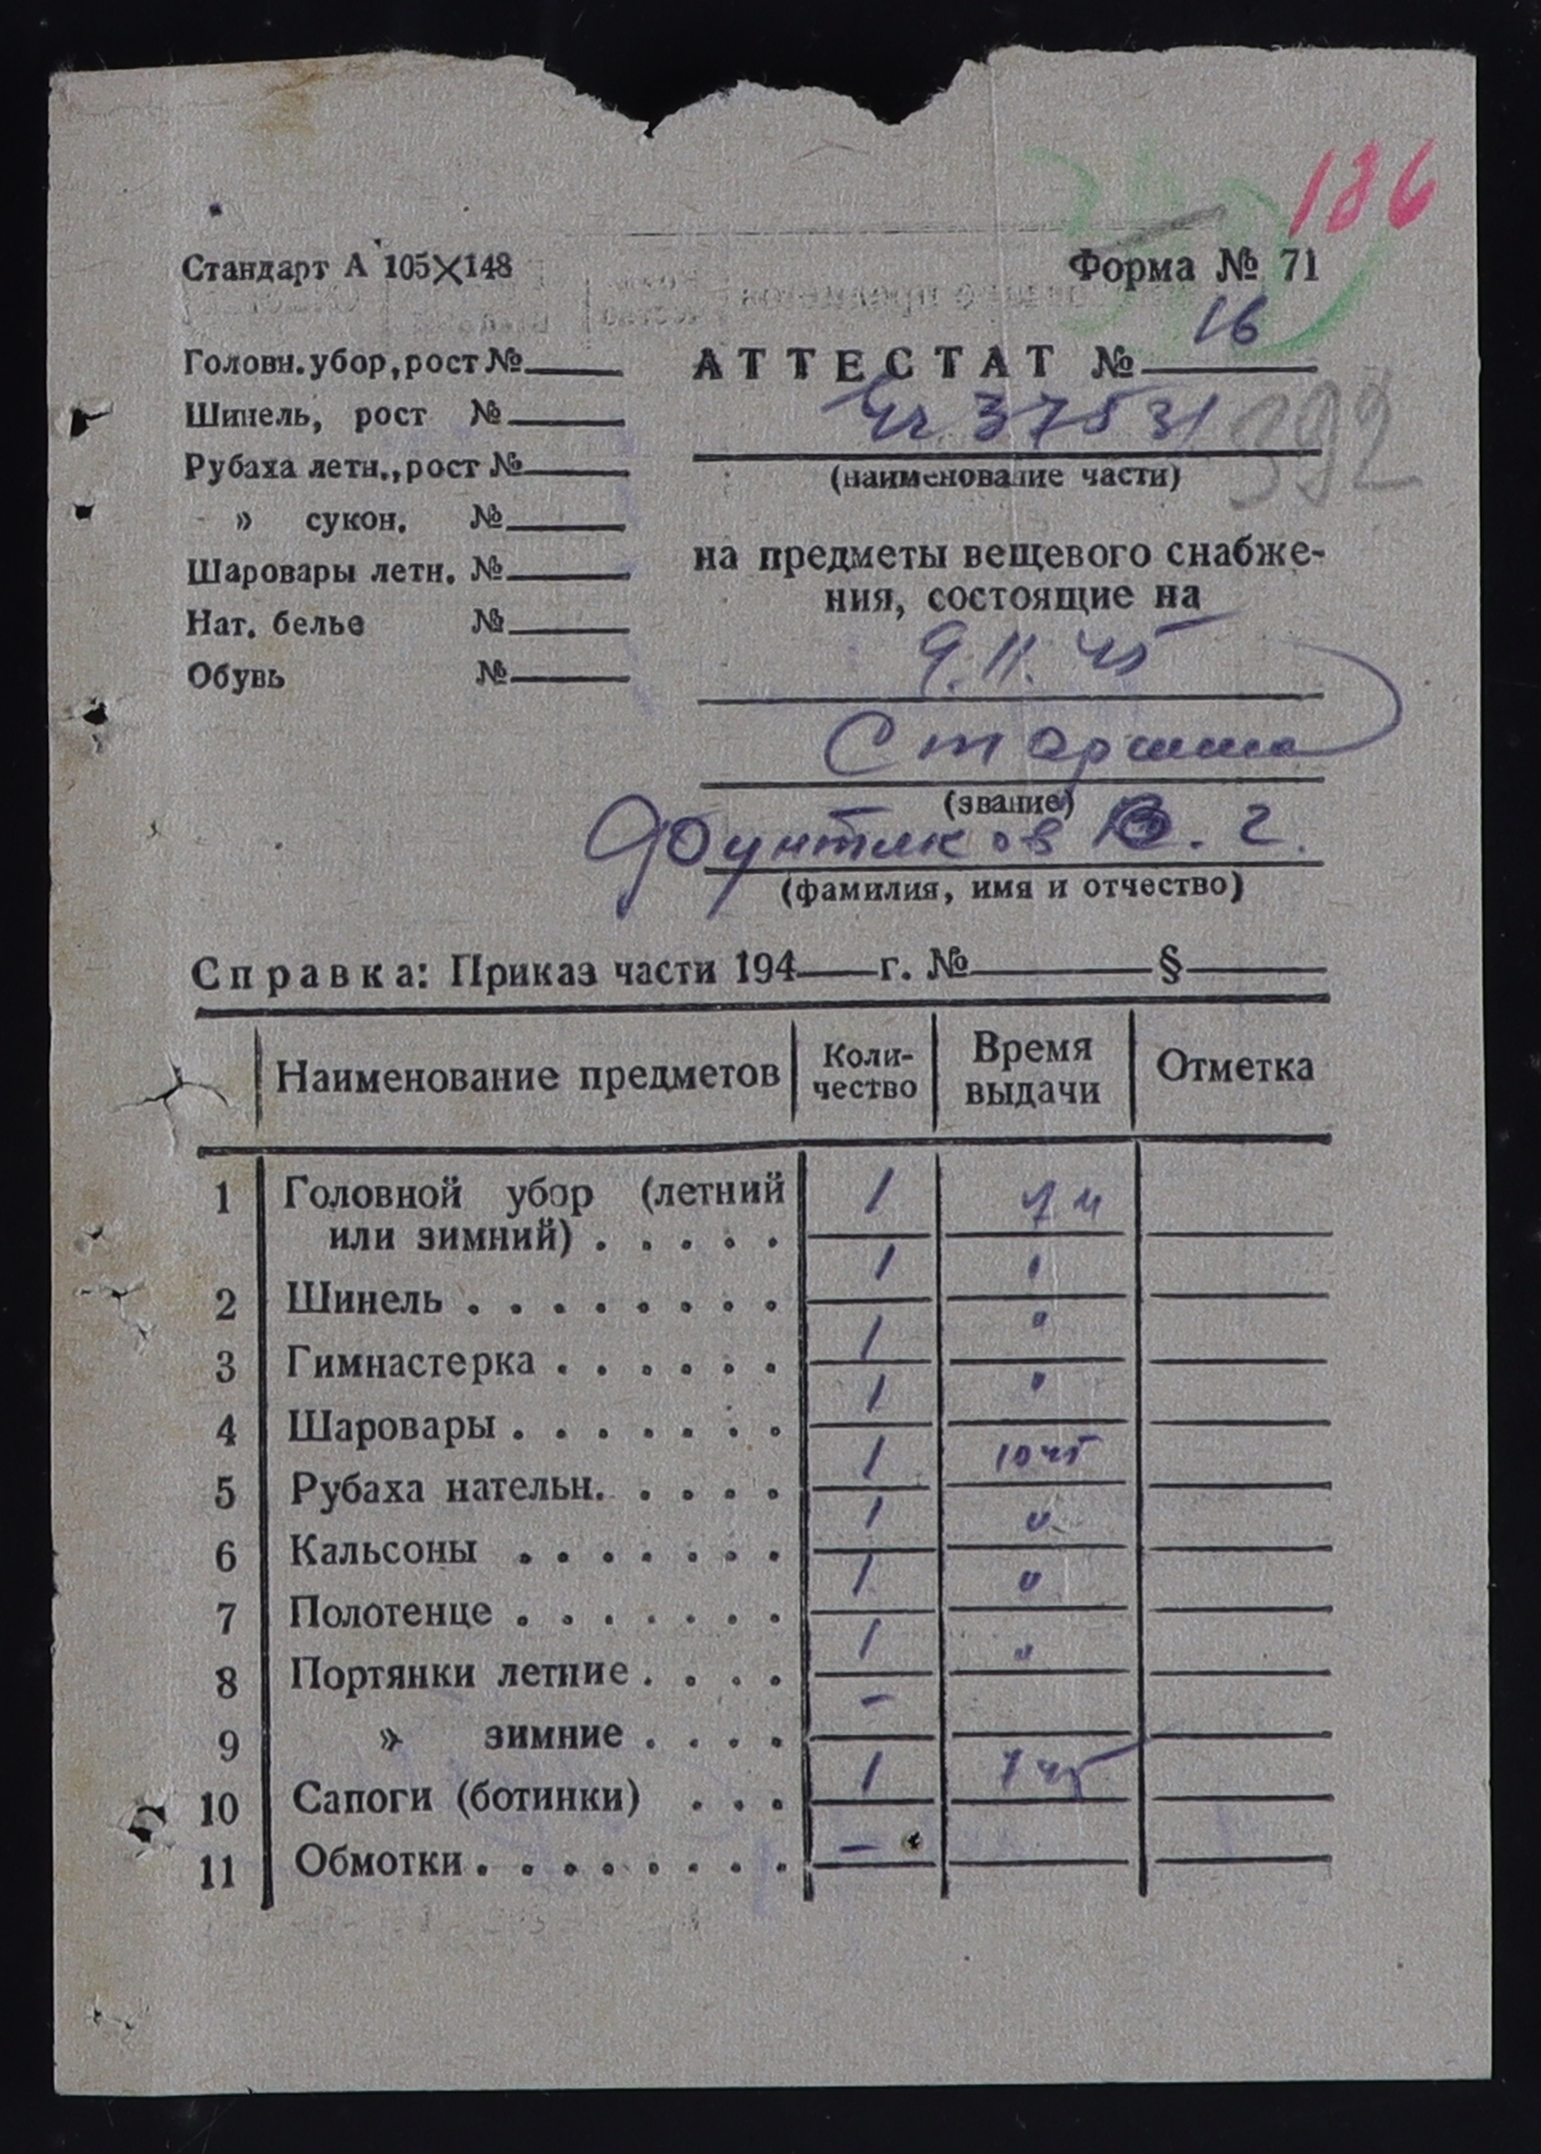 186
Стандарт А 105×148
Форма № 71
Головн. убор, рост №
Шинель, рост №
Рубаха летн., рост №
» сукон. №
Шаровары летн. №
Нат. белье №
Обувь №
АТТЕСТАТ № 16
37531
392
(наименование части)
на предметы вещевого снабже-
ния, состоящие на
9.11.45
Старшина
(звание)
Фунтиков В. Г.
(фамилия, имя и отчество)
Справка: Приказ части 194 г. № §
Наименование предметов Коли-чество Время выдачи Отметка
1 Головной убор (летний
или зимний) . . . . . 1
2 Шинель . . . . . . . . 1 "
3 Гимнастерка . . . . . . 1 "
4 Шаровары . . . . . . . 1 "
5 Рубаха нательн. . . . . 1 10 45
6 Кальсоны . . . . . . . 1 "
7 Полотенце . . . . . . . 1 "
8 Портянки летние . . . . 1 "
9 » зимние . . . . -
10 Сапоги (ботинки) . . . 1 7 45
11 Обмотки . . . . . . . . -